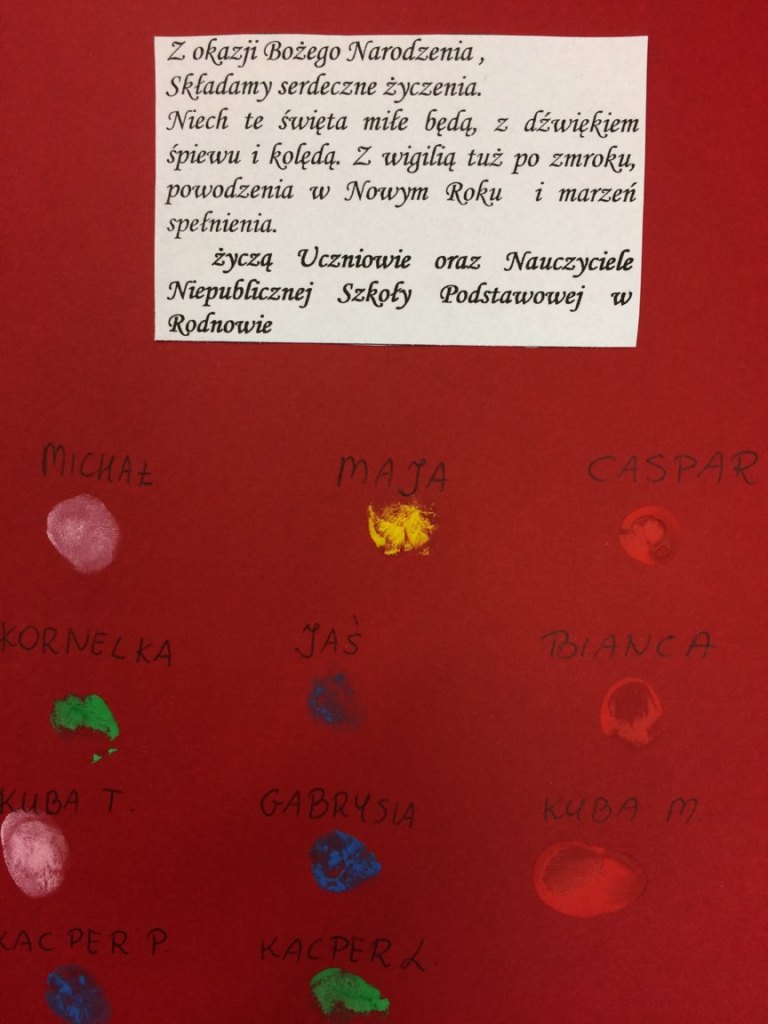 Z okazji Bożego Narodzenia ,
Składamy serdeczne życzenia.
Niech te święta miłe będą, z dźwiękiem
śpiewu i kolędą. Z wigilią tuż po zmroku,
powodzenia w Nowym Roku i marzeń
spełnienia.
życzą Uczniowie oraz Nauczyciele
Niepublicznej Szkoły Podstawowej w
Rodnowie
MICHAŁ MAJA CASPAR
KORNELKA JAŚ BIANCA
KUBA T. GABRYSIA KUBA M.
KACPER P. KACPER Ł.